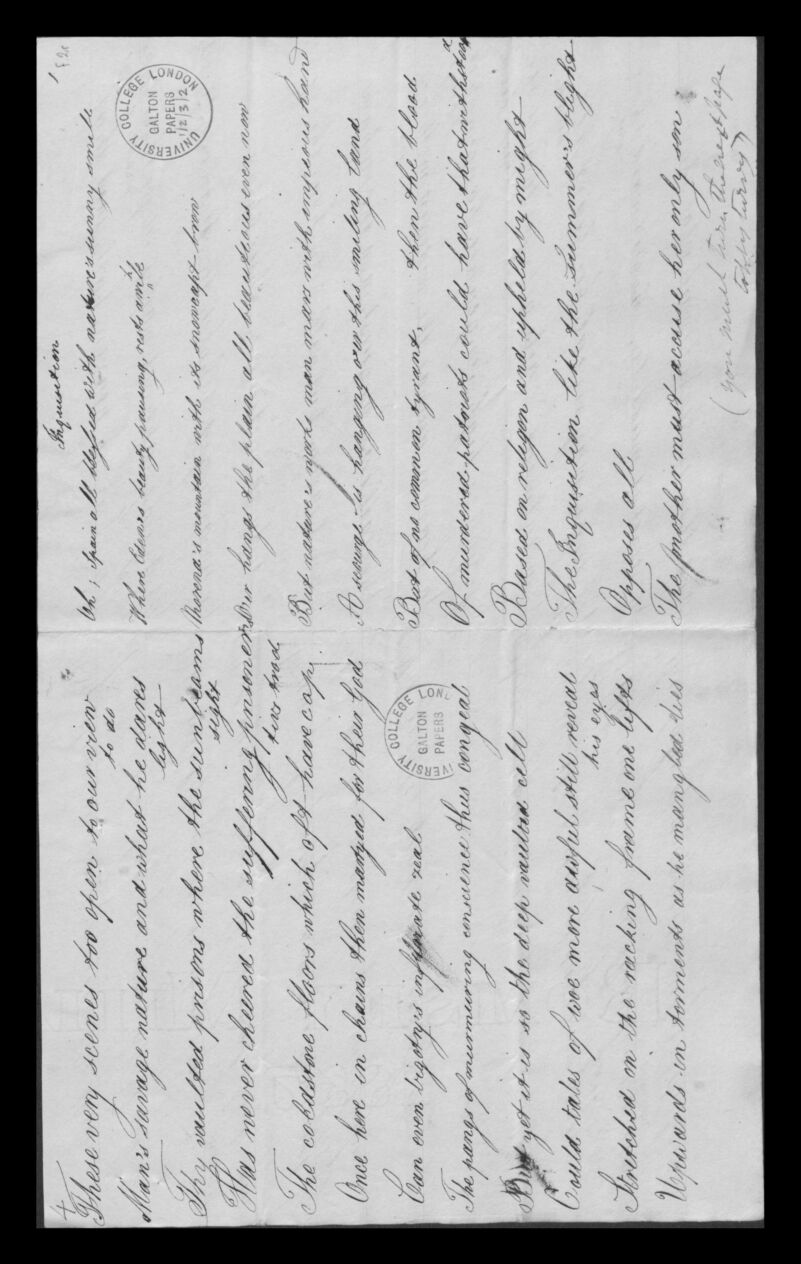 4
These very scenes too open to our view
to do
Man's savage nature and what he dares
light
Thy vaulted prisons where the sunbeams
sight
Has never cheered the suffering prisoners
The coldstone floors which oft have cap
trod
Once here in chains then martyrd for their God
Can even bigotrys infuriate zeal
The pangs of murmuring conscience thus congeal
But yet it is so the deep vaulted cell
Could tales of woe more awful still reveal
his eyes
Stretched on the racking frame one lifts
Upwards in torments as he mangled dies
UNIVERSITY COLLEGE LONDON
GALTON
PAPERS
1
Inquisition
Oh; Spain all blessed with nature's sunny smile
Where Eden's beauty pausing, rests awhile
Morena's mountain with its snowcapt brow
Oer hangs the plain all beauteous even now
But nature's works man mars with impious hand
A scourge Is hanging over this smiling land
But of no common tyrant, then the blood
Of murdered patriots could have that withstood
Based on religon and upheld by might
The Inquisition like the Summer's blight
Opposes all
The mother must accuse her only son
(you must turn the next page
topsy turvy)
UNIVERSITY COLLEGE LONDON
GALTON
PAPERS
1/2/3/2